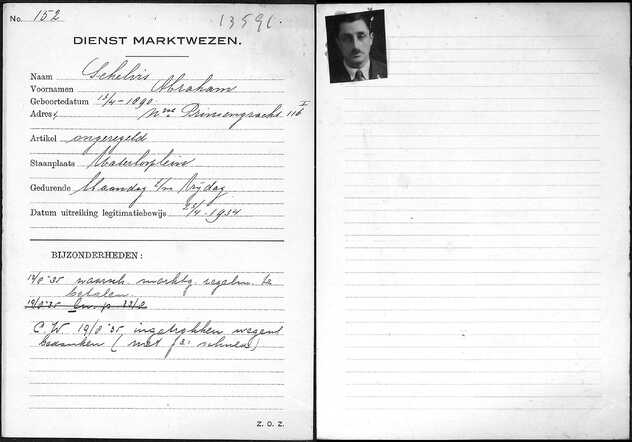 No. 152
13591.
DIENST MARKTWEZEN.
Naam Schelvis
Voornamen Abraham
Geboortedatum 13/4-1890.
Adres, Nwe. Prinsengracht 116 I
Artikel ongeregeld
Staanplaats Waterlooplein
Gedurende Maandag t/m Vrijdag
Datum uitreiking legitimatiebewijs 25/4-1934
BIJZONDERHEDEN:
waarsch. marktg. regelm. te
betalen.
C.W. 19/8'35. ingetrokken wegens
bedanken (met schuld)
Z. O. Z.